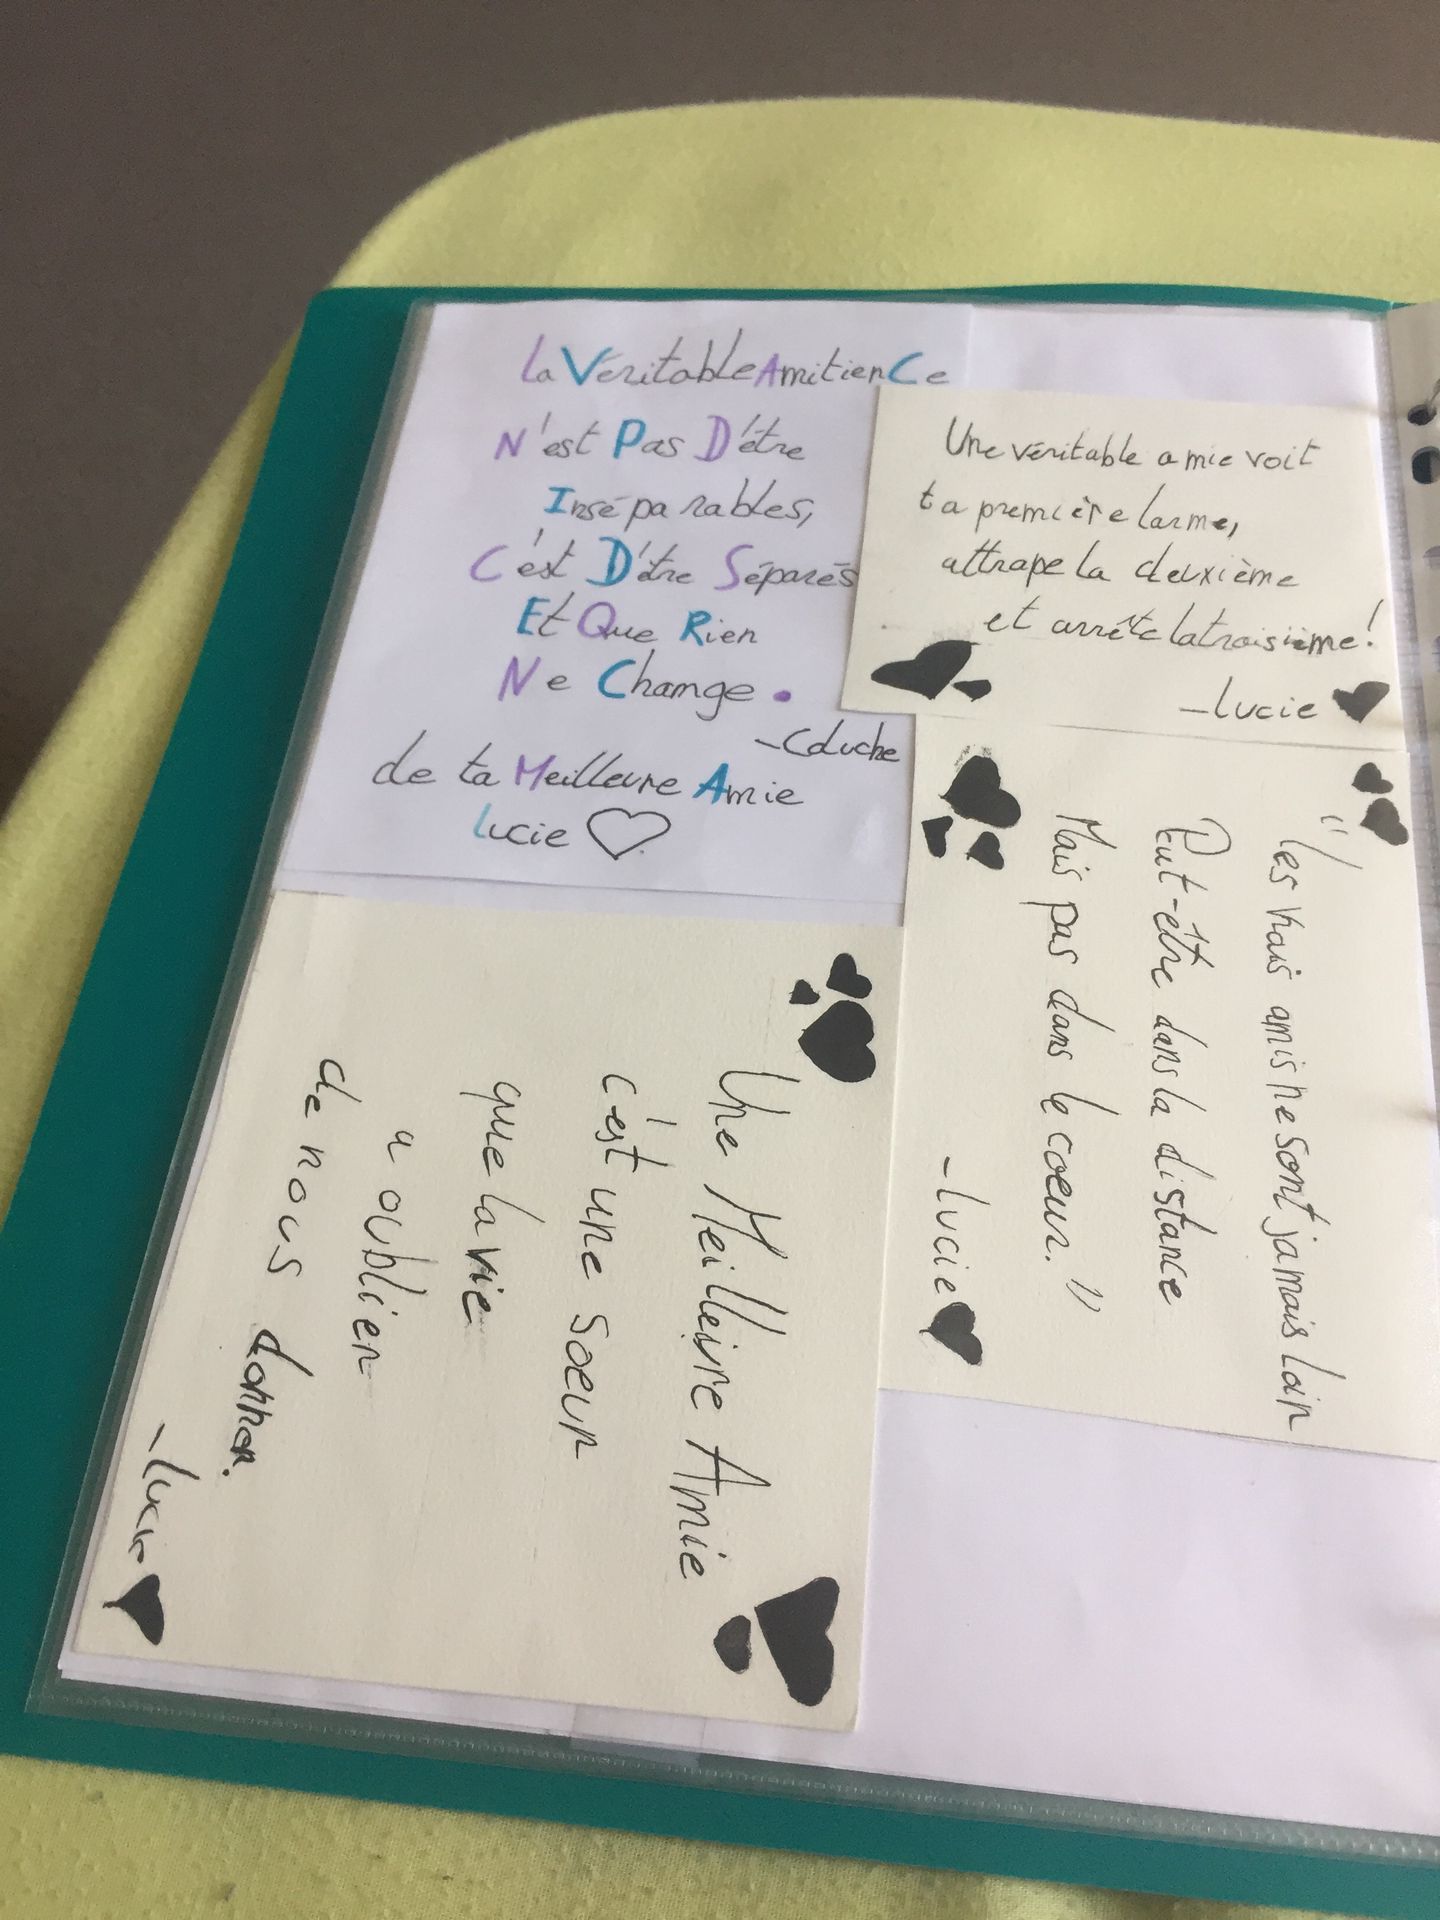 La Véritable Amitien Ce
N'est Pas D'être
Inséparables,
C'est D'être Séparés
Et Que Rien
Ne Change.
-Coluche
de ta Meilleure Amie
Lucie
Une véritable amie voit
ta première larme,
attrape la deuxième
et arrête la troisième!
-Lucie
"Les vrais amis ne sont jamais loin
Peut-être dans la distance
Mais pas dans le coeur."
-Lucie
Une Meilleure Amie
c'est une soeur
que la vie
a oublier
de nous donner.
-Lucie